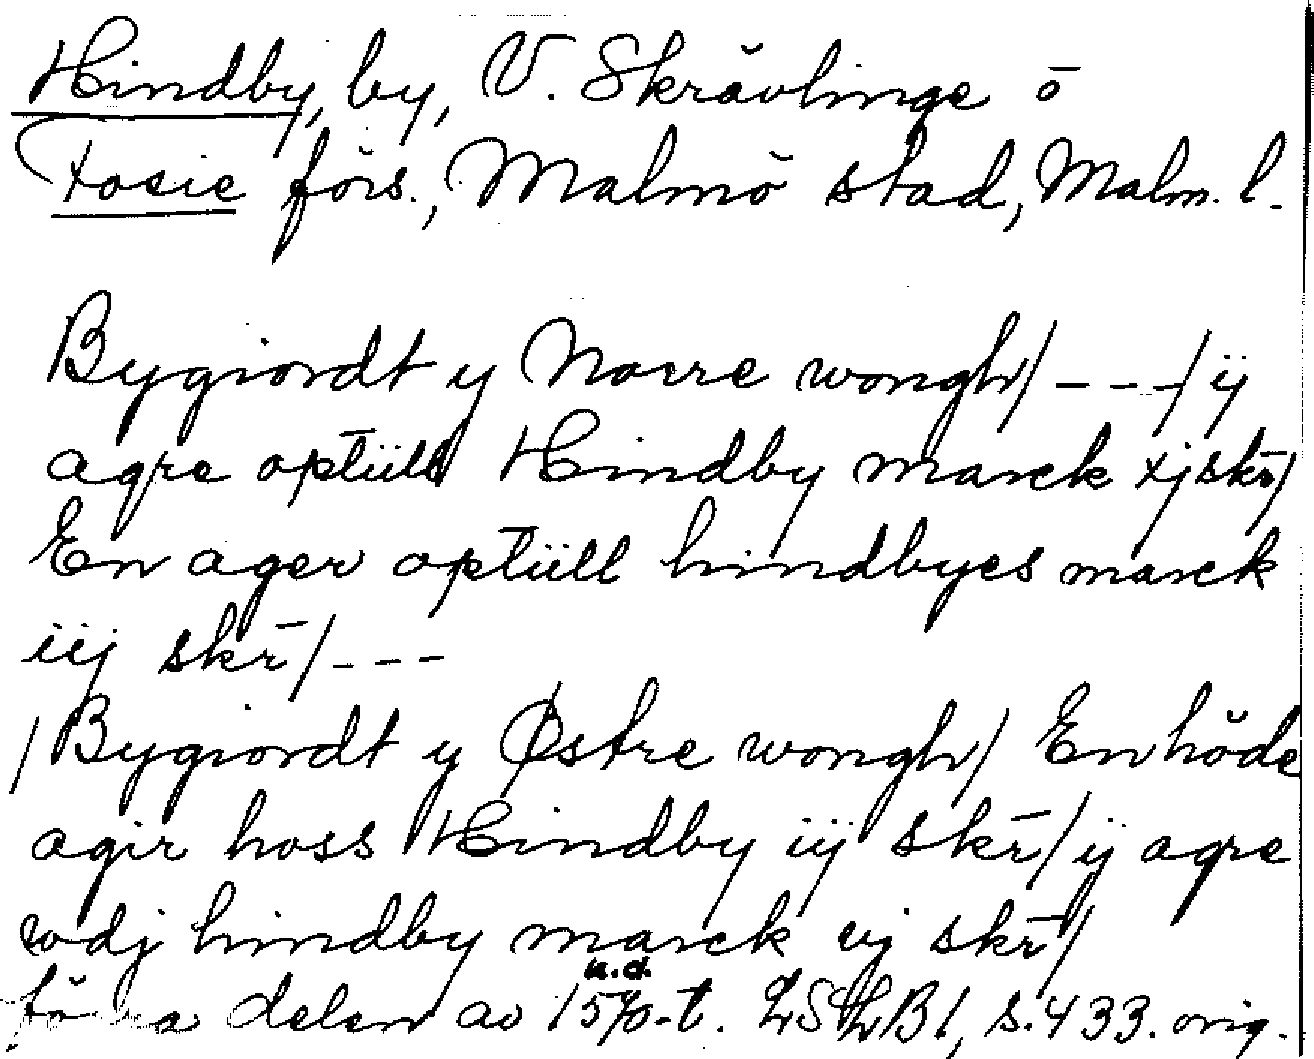 Hindby, by, V. Skrävlinge o
Fosie förs., Malmö stad, Malm. l.
Bygiordt y Norre wongh/ - - - / ij
agre optiill Hindby marck xj skr̄/
En ager optiill hindbyes marck
iij skr̄/ - - -
/Bygiordt y Østre wongh/ En höde
agir hoss Hindby iij skr̄/ ij agre
wdj hindby marck vj skr̄/
u.d.
delen av 1570-t. LSLB1, s. 433. orig.